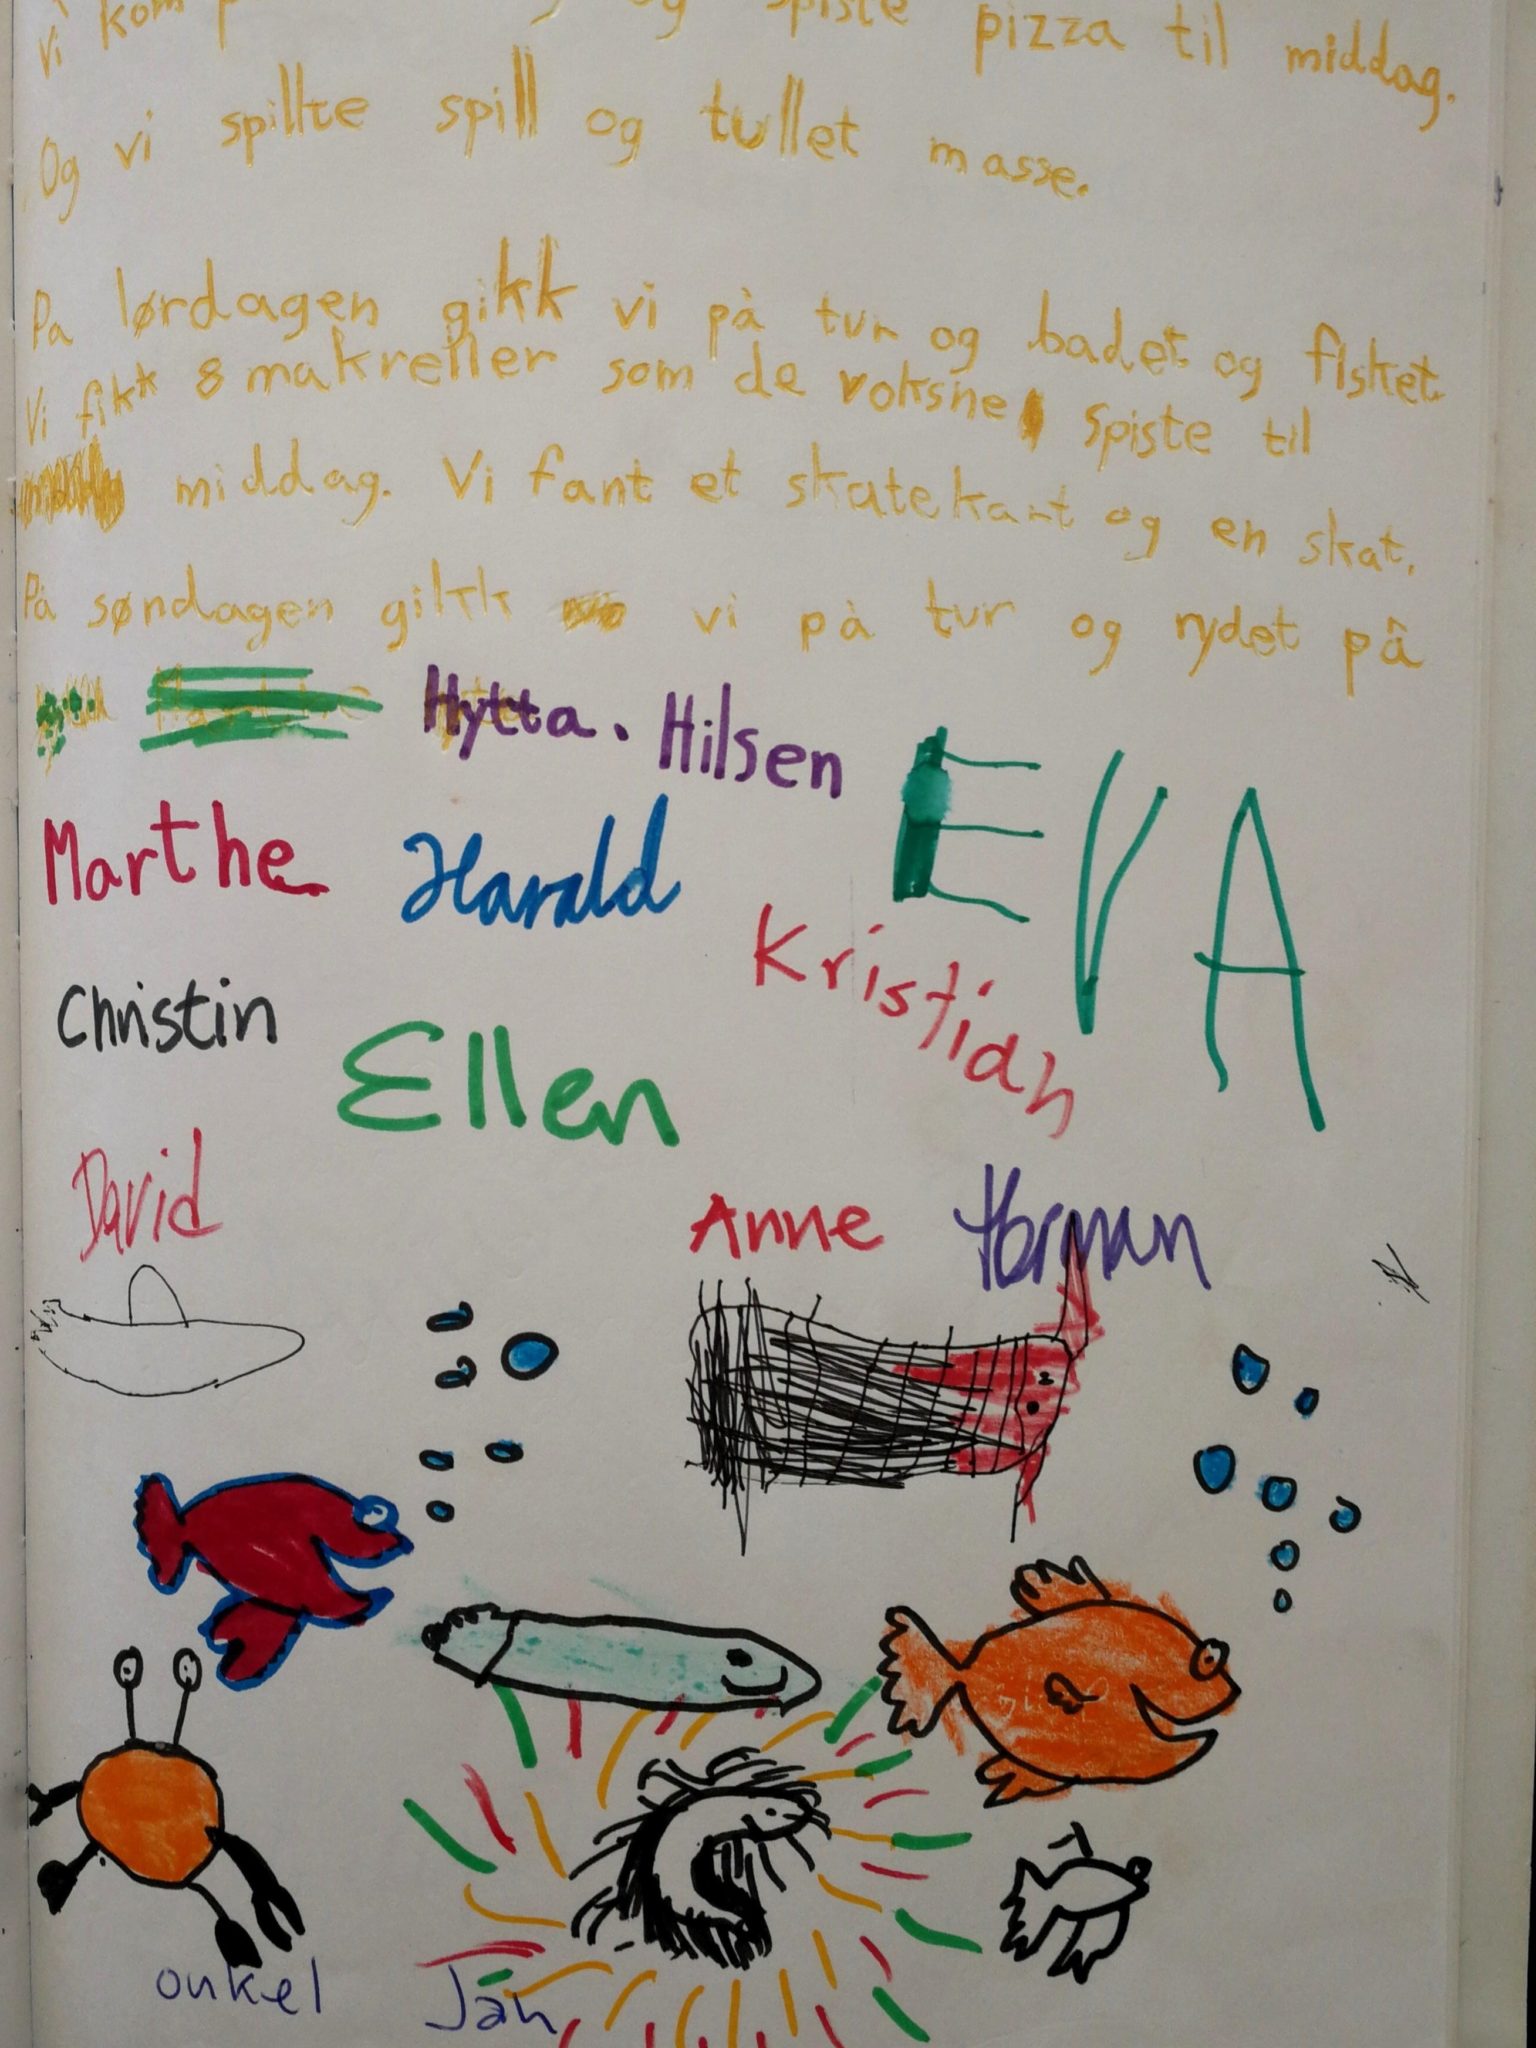 Vi kom på og spiste pizza til middag.
Og vi spillte spill og tullet masse.
Pa lørdagen gikk vi på tur og badet og fisket
Vi fikk 8 makreller som de voksne spiste til
middag. Vi fant et skatekart og en skat.
På søndagen gikk vi på tur og rydet på
Hytta. Hilsen EVA
Marthe Harald
Kristian
Christin
Ellen
David
Anne Herman
onkel Jan